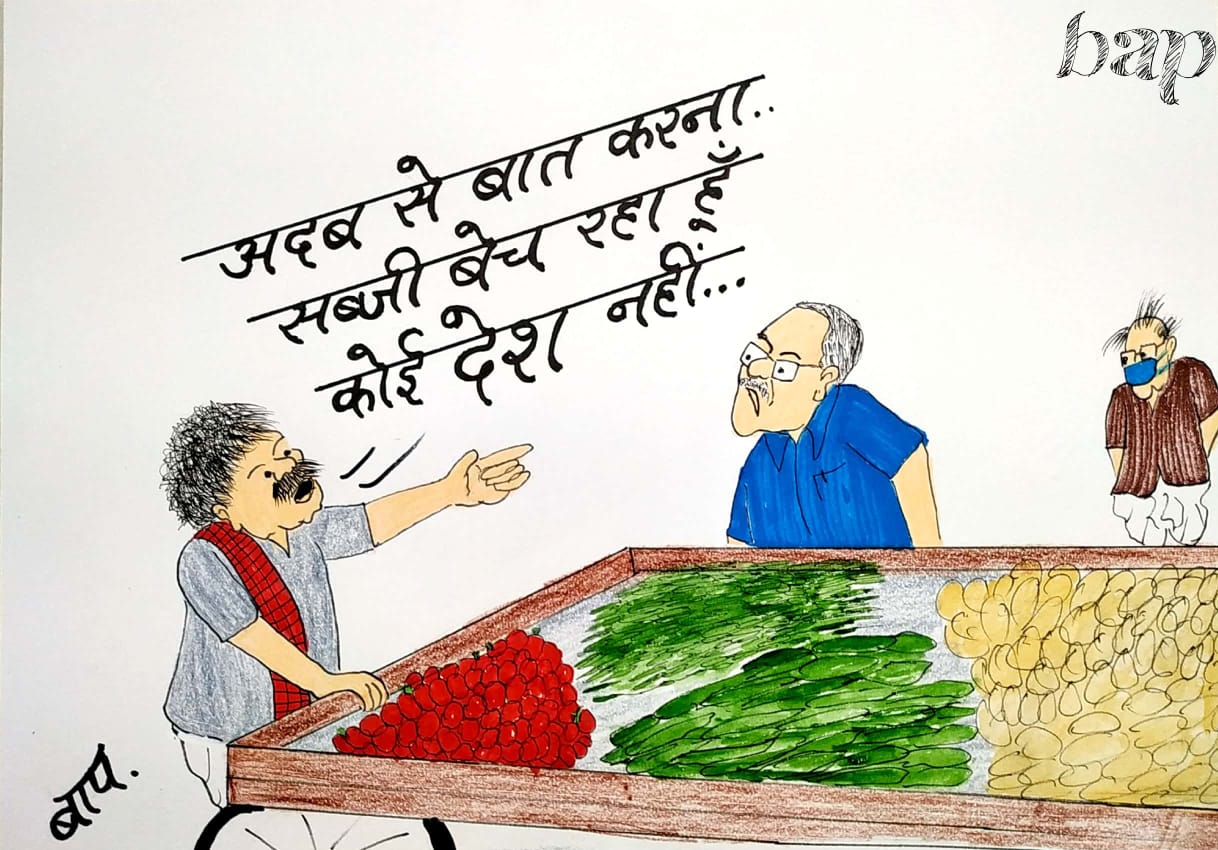 bap
अदब से बात करना..
सब्जी बेच रहा हूँ
कोई देश नहीं...
बाप.